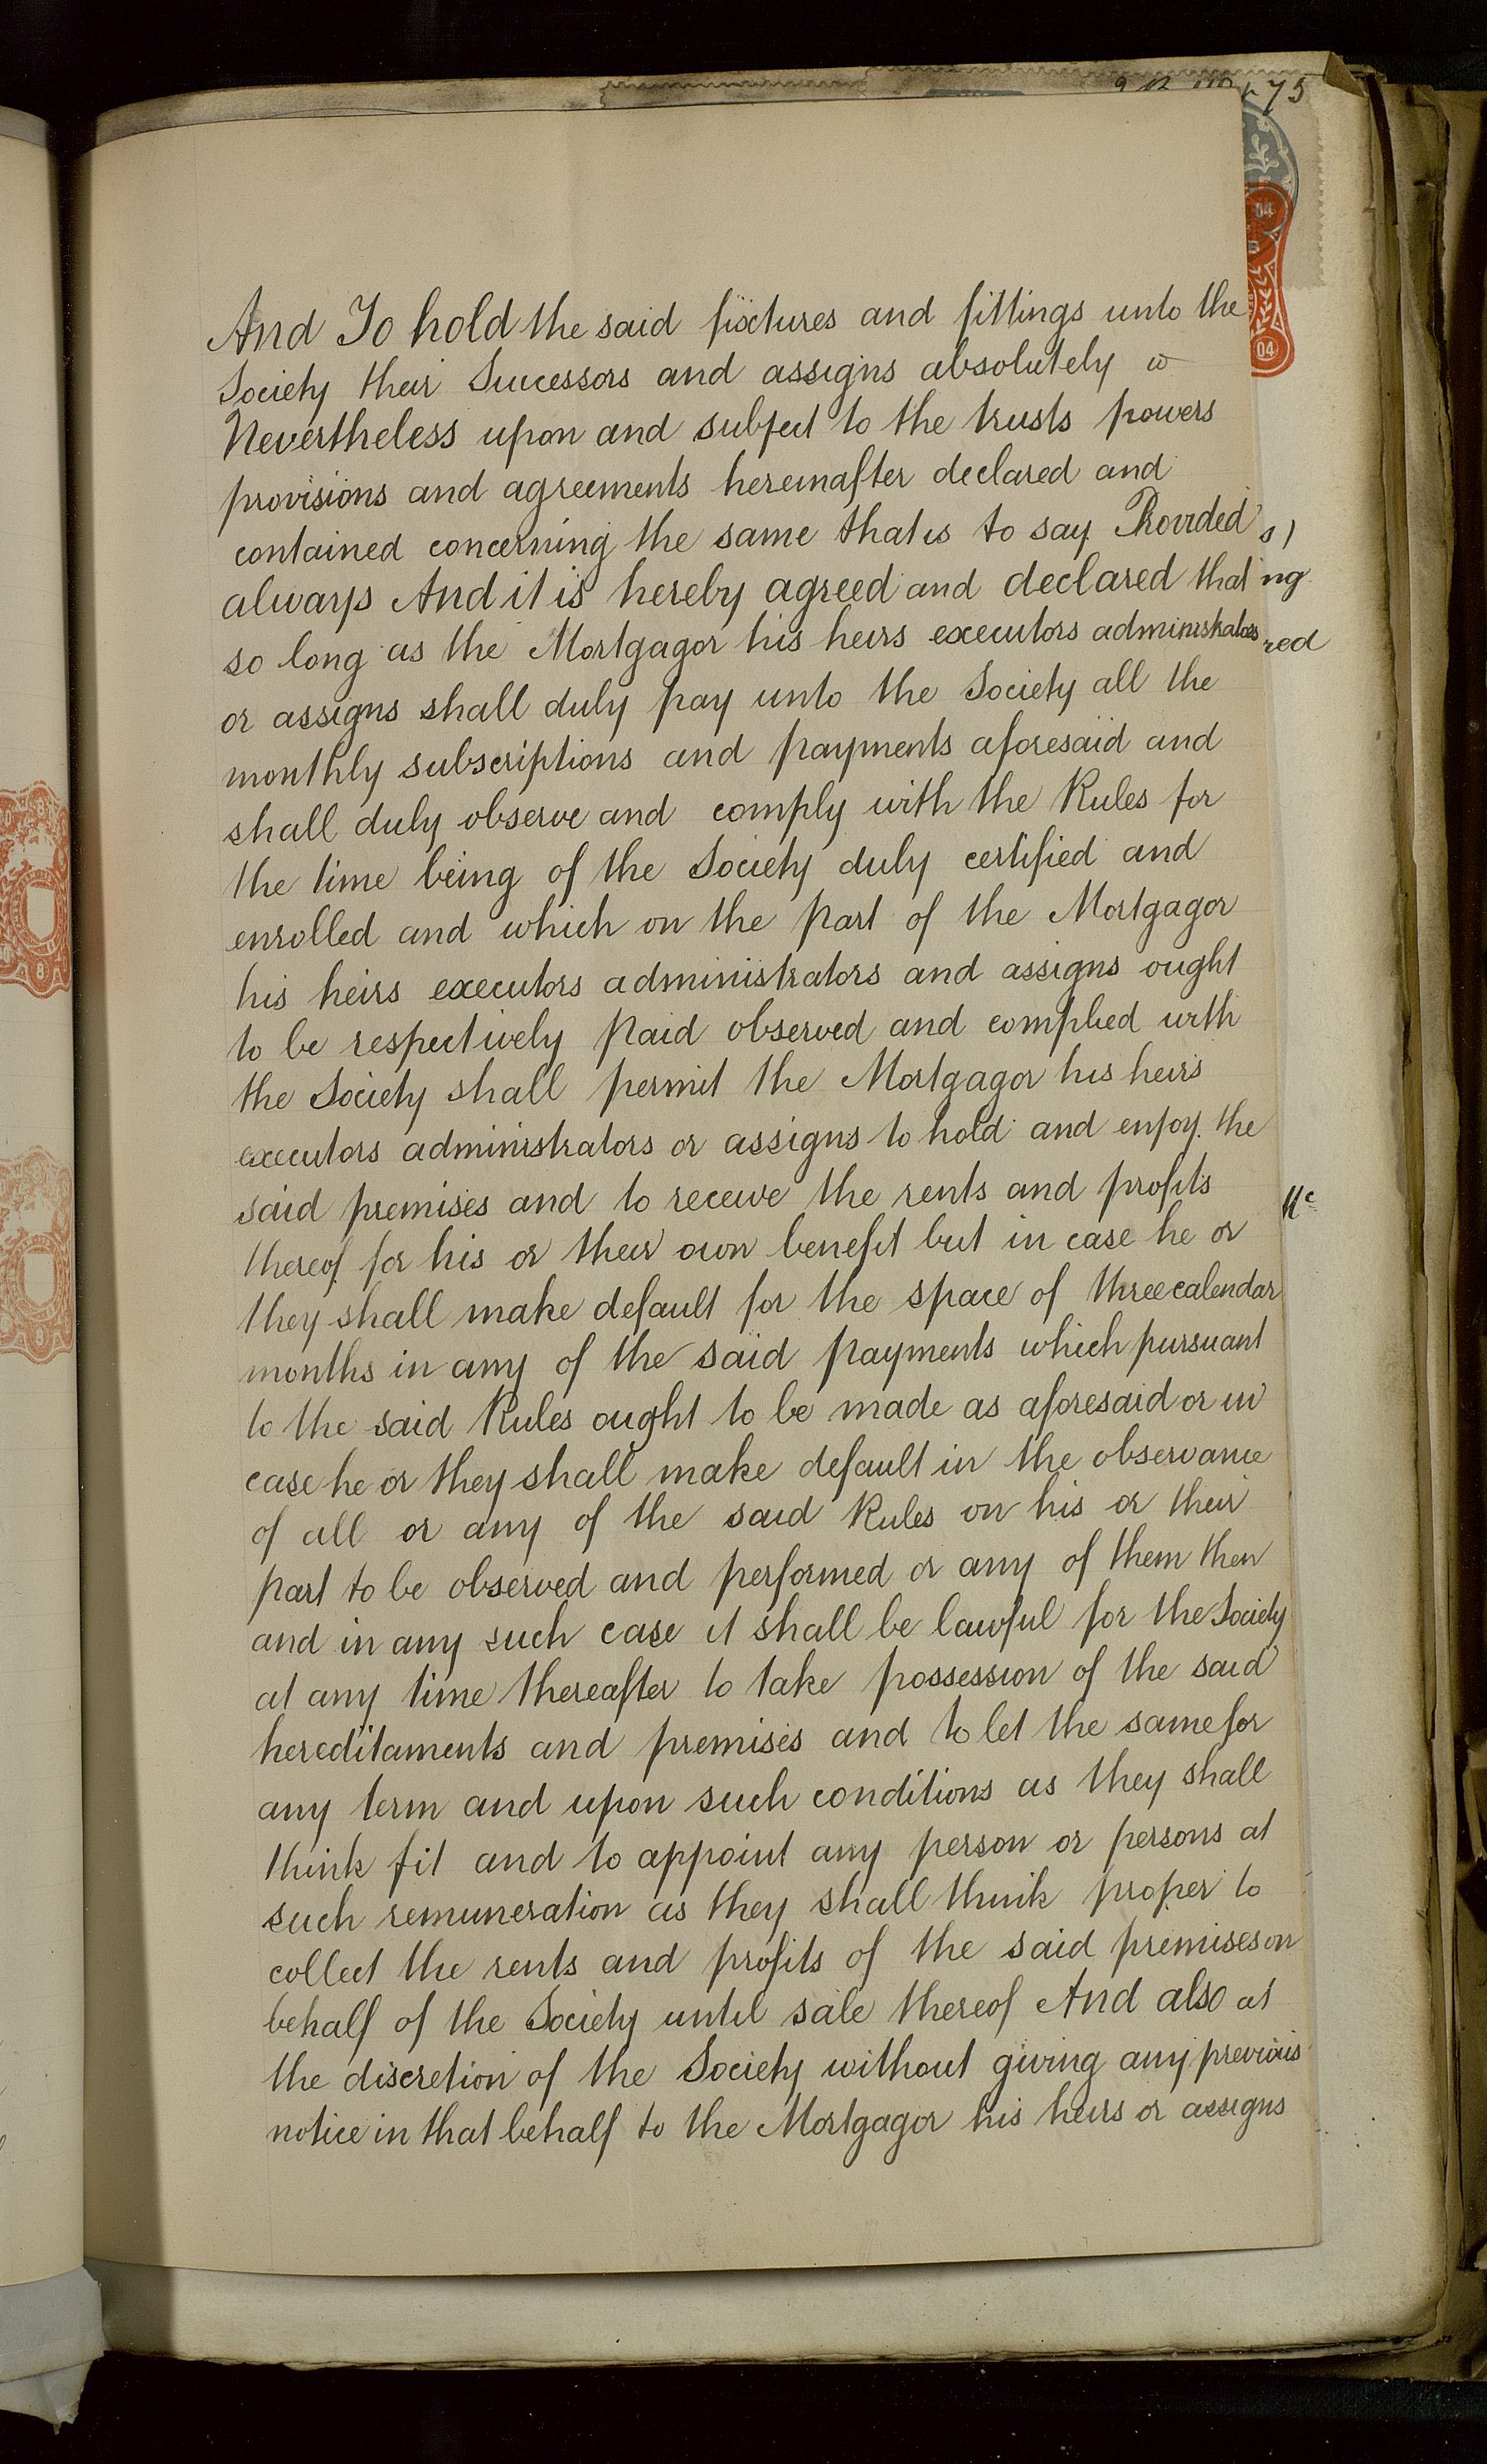 75
04
04
And To hold the said fixtures and fittings unto the
Society their Successors and assigns absolutely
Nevertheless upon and subject to the trusts powers
provisions and agreements hereinafter declared and
contained concerning the same that is to say Provided
always And it is hereby agreed and declared that
so long as the Mortgagor his heirs executors administrators
or assigns shall duly pay unto the Society all the
monthly subscriptions and payments aforesaid and
shall duly observe and comply with the Rules for
the time being of the Society duly certified and
enrolled and which on the part of the Mortgagor
his heirs executors administrators and assigns ought
to be respectively paid observed and complied with
the Society shall permit the Mortgagor his heirs
executors administrators or assigns to hold and enjoy the
said premises and to receive the rents and profits
thereof for his or their own benefit but in case he or
they shall make default for the space of three calendar
months in any of the said payments which pursuant
to the said Rules ought to be made as aforesaid or in
case he or they shall make default in the observance
of all or any of the said Rules on his or their
part to be observed and performed or any of them then
and in any such case it shall be lawful for the Society
at any time thereafter to take possession of the said
hereditaments and premises and to let the same for
any term and upon such conditions as they shall
think fit and to appoint any person or persons at
such remuneration as they shall think proper to
collect the rents and profits of the said premises on
behalf of the Society until sale thereof And also at
the discretion of the Society without giving any previous
notice in that behalf to the Mortgagor his heirs or assigns
ng
red